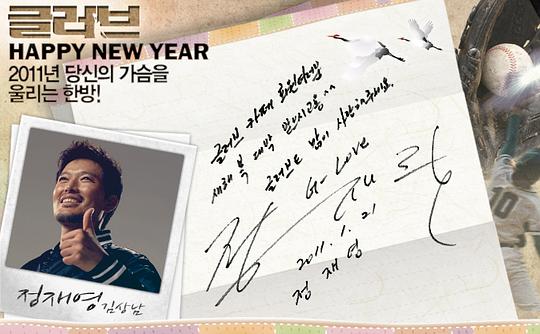 글러브
HAPPY NEW YEAR
2011년 당신의 가슴을
울리는 한방!
글러브 카페 회원여러분
새해 복 대박 받으시고용^^
글러브도 많이 사랑해주세요.
G-Love
2011. 1. 21
정재영
정재영 김상남
10